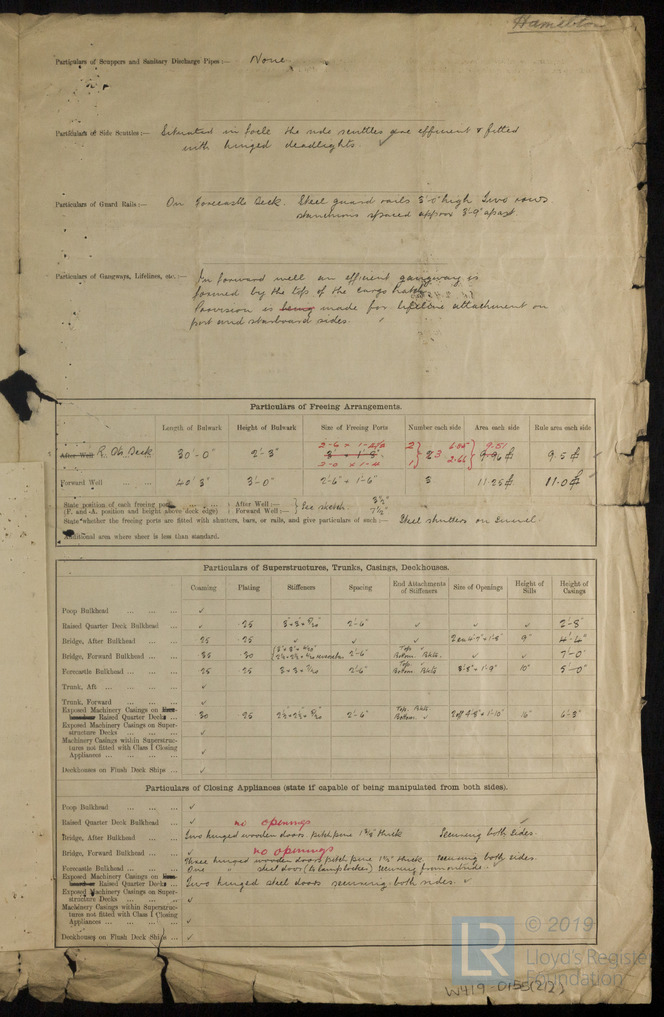 Hamilton
Particulars of Scuppers and Sanitary Discharge Pipes :— None
Particulars of Side Scuttles :— Situated in Focle the side scuttles are efficient & fitted
with hinged deadlights.
Particulars of Guard Rails :— On Forecastle Deck. Steel guard rails 3'-0" high Two rows
stanchions spaced approx 3'-9" apart.
Particulars of Gangways, Lifelines, etc. :— In forward well an efficient gangway is
formed by the top of the cargo hatch
Provision is being made for lifeline attachment on
port and starboard sides.
Particulars of Freeing Arrangements.
Length of Bulwark Height of Bulwark Size of Freeing Ports Number each side Area each side Rule area each side
After Well R. Qr. Deck 30'-0" 2'-3" 2 3 9.51 9.5
2-0 x 1-4 1 2.66
Forward Well ... ... 40'-3" 3'-0" 2'-6" x 1'-6" 3 11.25 11.0
State position of each freeing port After Well :— See sketch 3½"
(F. and A. position and height above deck edge) Forward Well :— 7½"
State whether the freeing ports are fitted with shutters, bars, or rails, and give particulars of each :— Steel shutters on
Additional area where sheer is less than standard.
Particulars of Superstructures, Trunks, Casings, Deckhouses.
Coaming Plating Stiffeners Spacing End Attachments of Stiffeners Size of Openings Height of Sills Height of Casings
Poop Bulkhead ... ... ... ✓
Raised Quarter Deck Bulkhead ... ✓ .25 2'-6" ✓ ✓ ✓ 2'-3"
Bridge, After Bulkhead ... ... .25 .25 ✓ ✓ ✓ 9" 4'-4"
Bridge, Forward Bulkhead ... ... .35 .30 2'-6" Top. ✓ Bottom. Bkts. ✓ ✓ 7'-0"
Forecastle Bulkhead ... ... ... .25 .25 2'-6" Top. ✓ Bottom Bkts 16" 5'-0"
Trunk, Aft ... ... ... ... ✓
Trunk, Forward ... ... ... ✓
Exposed Machinery Casings on
Raised Quarter Decks ... .30 .25 2'-6" Top. Bkts. Bottom. ✓ 16" 6'-3"
Exposed Machinery Casings on Super-
structure Decks ... ... ... ✓
Machinery Casings within Superstruc-
tures not fitted with Class I Closing
Appliances ... ... ... ... ✓
Deckhouses on Flush Deck Ships ... ✓
Particulars of Closing Appliances (state if capable of being manipulated from both sides).
Poop Bulkhead ... ... ... ✓
Raised Quarter Deck Bulkhead ... ✓ no openings
Bridge, After Bulkhead ... ... Two hinged wooden doors pitch pine thick Securing both sides.
Bridge, Forward Bulkhead ... ... ✓ no openings
Three hinged wooden doors pitch pine thick, securing both sides.
Forecastle Bulkhead ... ... ... One " steel door (to lamp locker) securing from outside.
Exposed Machinery Casings on
Raised Quarter Decks ... Two hinged steel doors securing both sides. ✓
Exposed Machinery Casings on Super-
structure Decks ... ... ... ✓
Machinery Casings within Superstruc-
tures not fitted with Class I Closing
Appliances ... ... ... ... ✓
Deckhouses on Flush Deck Ships ... ✓
© 2019
LR Lloyd's Register
Foundation
W419-0155(2/2)